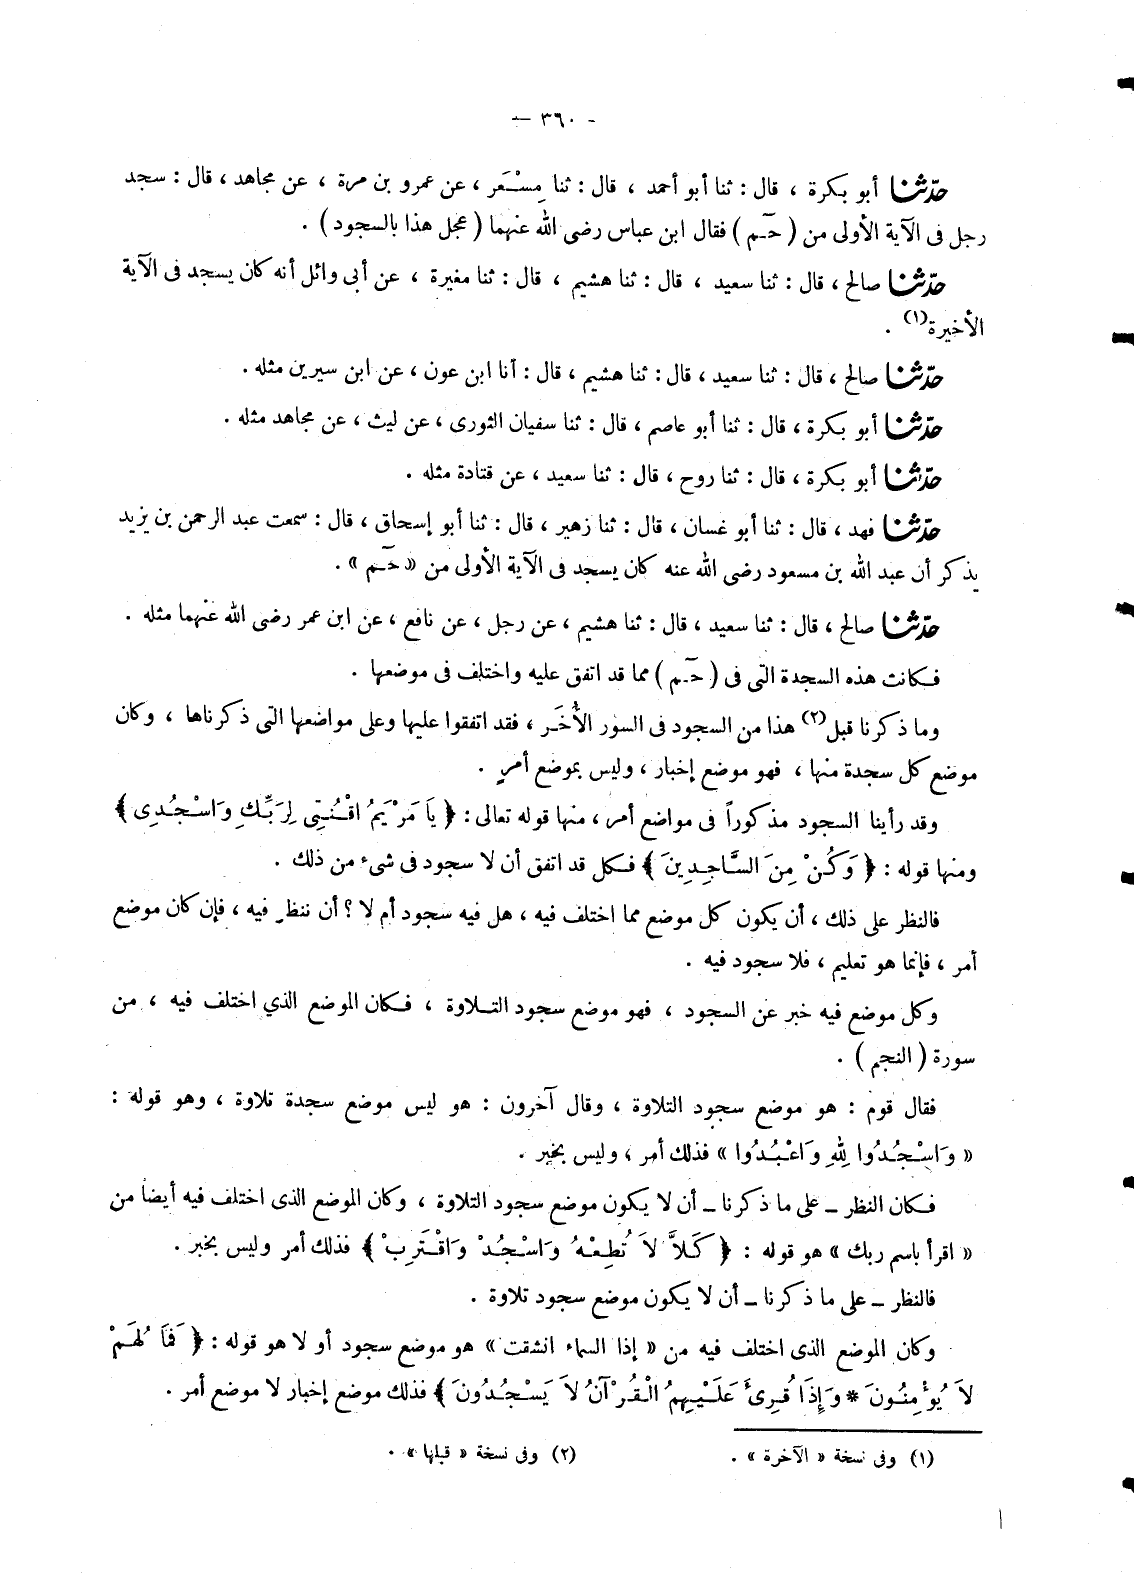 - ٣٦٠ —
حدّثنا أبو بكرة ، قال : ثنا أبو أحمد ، قال : ثنا مِسْعَر ، عن عمرو بن مرة ، عن مجاهد ، قال : سجد
رجل فى الآية الأولى من ( حٓـم ) فقال ابن عباس رضى الله عنهما ( عجل هذا بالسجود ) .
حدّثنا صالح ، قال : ثنا سعيد ، قال : ثنا هشيم ، قال : ثنا مغيرة ، عن أبى وائل أنه كان يسجد فى الآية
الأخيرة(١) .
حدّثنا صالح ، قال : ثنا سعيد ، قال : ثنا هشيم ، قال : أنا ابن عون ، عن ابن سيرين مثله .
حدّثنا أبو بكرة ، قال : ثنا أبو عاصم ، قال : ثنا سفيان الثورى ، عن ليث ، عن مجاهد مثله .
حدّثنا أبو بكرة ، قال : ثنا روح ، قال : ثنا سعيد ، عن قتادة مثله .
حدّثنا فهد ، قال : ثنا أبو غسان ، قال : ثنا زهير ، قال : ثنا أبو إسحاق ، قال : سمعت عبد الرحمن بن يزيد
يذكر أن عبد الله بن مسعود رضى الله عنه كان يسجد فى الآية الأولى من « حٓـم » .
حدّثنا صالح ، قال : ثنا سعيد ، قال : ثنا هشيم ، عن رجل ، عن نافع ، عن ابن عمر رضى الله عنهما مثله .
فكانت هذه السجدة التى فى ( حٓـم ) مما قد اتفق عليه واختلف فى موضعها .
وما ذكرنا قبل(٢) هذا من السجود فى السور الأُخَر ، فقد اتفقوا عليها وعلى مواضعها التى ذكرناها ، وكان
موضع كل سجدة منها ، فهو موضع إخبار ، وليس بموضع أمرٍ .
وقد رأينا السجود مذكوراً فى مواضع أمر ، منها قوله تعالى : ﴿ يَا مَرْيَمُ اقْنُتِى لِرَبِّكِ وَاسْجُدِى ﴾
ومنها قوله : ﴿ وَكُنْ مِنَ السَّاجِدِينَ ﴾ فكل قد اتفق أن لا سجود فى شىء من ذلك .
فالنظر على ذلك ، أن يكون كل موضع مما اختلف فيه ، هل فيه سجود أم لا ؟ أن ننظر فيه ، فإن كان موضع
أمر ، فإنما هو تعليم ، فلا سجود فيه .
وكل موضع فيه خبر عن السجود ، فهو موضع سجود التلاوة ، فكان الموضع الذي اختلف فيه ، من
سورة ( النجم ) .
فقال قوم : هو موضع سجود التلاوة ، وقال آخرون : هو ليس موضع سجدة تلاوة ، وهو قوله :
« وَاسْجُدُوا لِلّٰهِ وَاعْبُدُوا » فذلك أمر ، وليس بخبر .
فكان النظر ــ على ما ذكرنا ــ أن لا يكون موضع سجود التلاوة ، وكان الموضع الذى اختلف فيه أيضاً من
« اقرأ باسم ربك » هو قوله : ﴿ كَلاَّ لاَ تُطِعْهُ وَاسْجُدْ وَاقْتَرِبْ ﴾ فذلك أمر وليس بخبر .
فالنظر ــ على ما ذكرنا ــ أن لا يكون موضع سجود تلاوة .
وكان الموضع الذى اختلف فيه من « إذا السماء انشقت » هو موضع سجود أو لا هو قوله : ﴿ فَمَا لَهُمْ
لاَ يُؤْمِنُونَ * وَإِذَا قُرِئَ عَلَيْهِمُ الْقُرْآنُ لاَ يَسْجُدُونَ ﴾ فذلك موضع إخبار لا موضع أمر .
(١) وفى نسخة « الآخرة » . (٢) وفى نسخة « قبلها » .